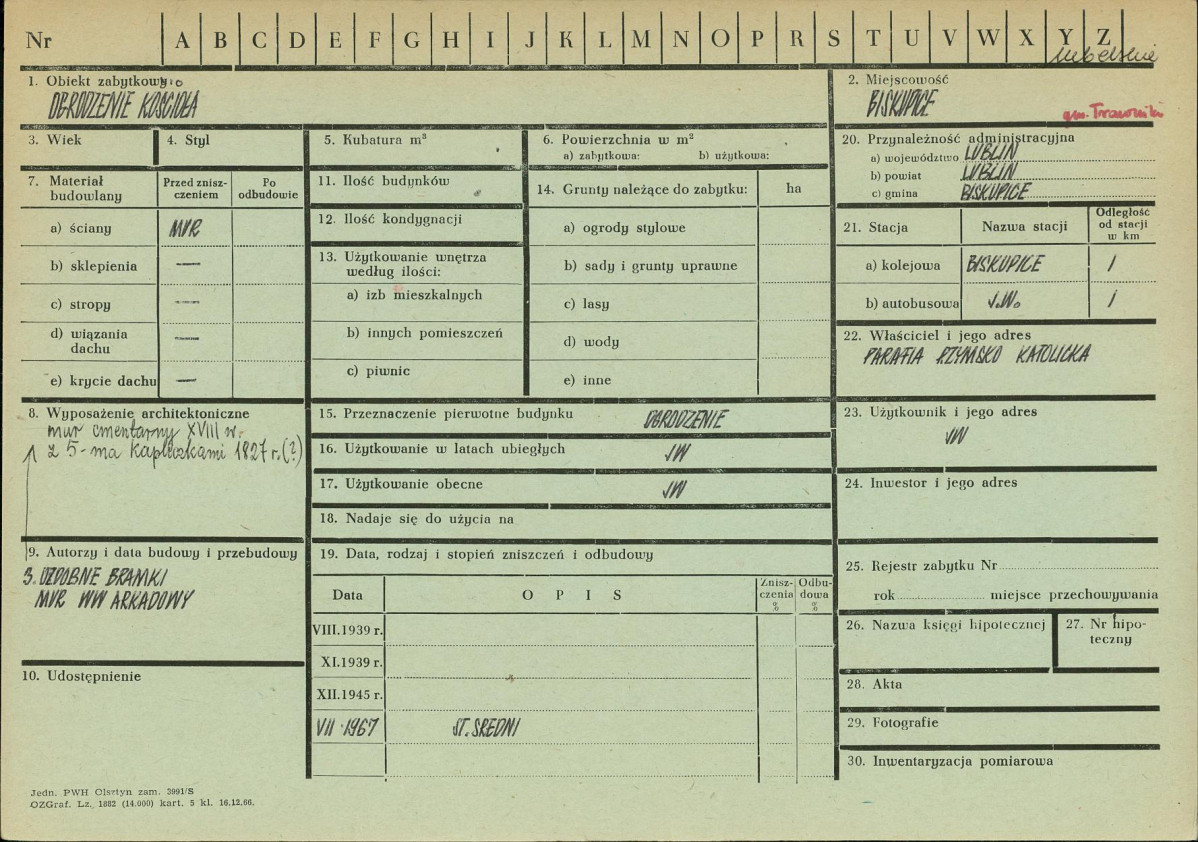 Nr A B C D E F G H I J K L M N O P R S T U V W X Y Z
lubelskie
1. Obiekt zabytkowy
OGRODZENIE KOŚCIOŁA
2. Miejscowość
BISKUPICE
gm. Trawniki
3. Wiek
4. Styl
5. Kubatura m³
6. Powierzchnia w m²
a) zabytkowa: b) użytkowa:
20. Przynależność administracyjna
a) województwo LUBLIN
b) powiat LUBLIN
c) gmina BISKUPICE
7. Materiał budowlany
Przed zniszczeniem
Po odbudowie
a) ściany MUR
b) sklepienia —
c) stropy —
d) wiązania dachu —
e) krycie dachu —
11. Ilość budynków
12. Ilość kondygnacji
13. Użytkowanie wnętrza
według ilości:
a) izb mieszkalnych
b) innych pomieszczeń
c) piwnic
14. Grunty należące do zabytku: ha
a) ogrody stylowe
b) sady i grunty uprawne
c) lasy
d) wody
e) inne
21. Stacja Nazwa stacji Odległość od stacji w km
a) kolejowa BISKUPICE 1
b) autobusowa J.W. 1
22. Właściciel i jego adres
PARAFIA RZYMSKO KATOLICKA
8. Wyposażenie architektoniczne
mur cmentarny XVIII w.
z 5-ma kapliczkami 1827 r. (?)
15. Przeznaczenie pierwotne budynku OGRODZENIE
16. Użytkowanie w latach ubiegłych JW
17. Użytkowanie obecne JW
18. Nadaje się do użycia na
23. Użytkownik i jego adres
JW
24. Inwestor i jego adres
9. Autorzy i data budowy i przebudowy
3. OZDOBNE BRAMKI
MUR WW ARKADOWY
10. Udostępnienie
19. Data, rodzaj i stopień zniszczeń i odbudowy
Data OPIS Zniszczenia % Odbudowa %
VIII.1939 r.
XI.1939 r.
XII.1945 r.
VII 1967 ST. ŚREDNI
25. Rejestr zabytku Nr
rok miejsce przechowywania
26. Nazwa księgi hipotecznej
27. Nr hipoteczny
28. Akta
29. Fotografie
30. Inwentaryzacja pomiarowa
Jedn. PWH Olsztyn zam. 3991/S
OZGraf. Lz. 1882 (14.000) kart. 5 kl. 16.12.66.